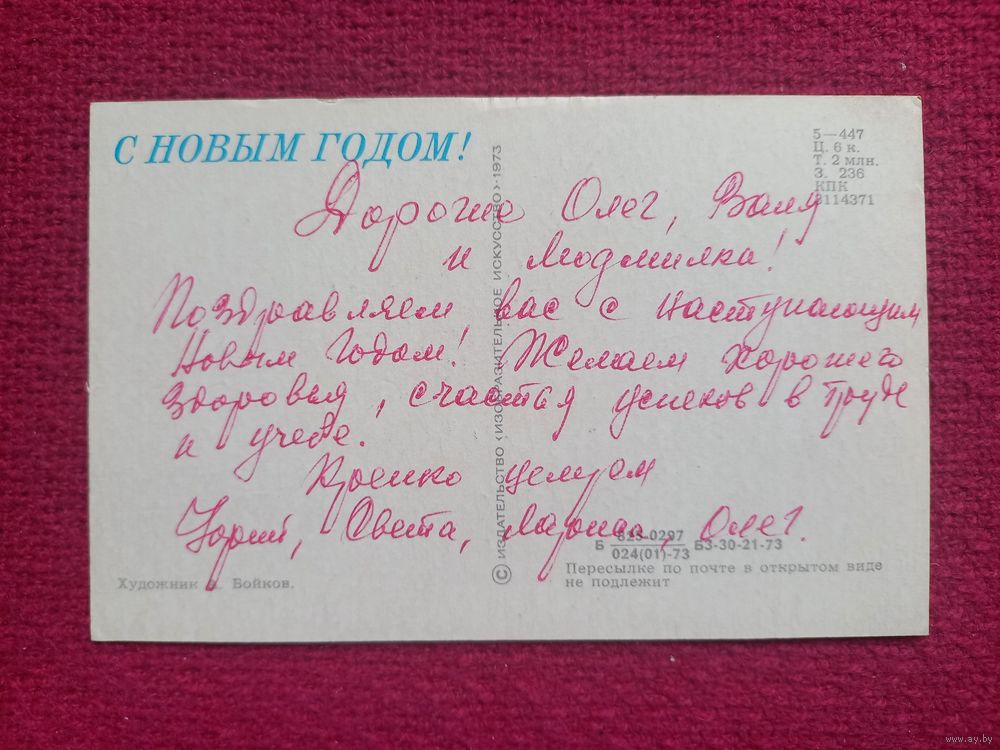 С НОВЫМ ГОДОМ!
5—447
Ц. 6 к.
Т. 2 млн.
З. 236
КПК
3114371
Дорогие Олег, Валя
и Людмилка!
Поздравляем вас с наступающим
Новым Годом! Желаем хорошего
здоровья, счастья успехов в труде
и учебе.
Крепко целуем
Юрий, Света, Лариса, Олег.
© ИЗДАТЕЛЬСТВО «ИЗОБРАЗИТЕЛЬНОЕ ИСКУССТВО»·1973
Б 825-0297 БЗ-30-21-73
024(01)-73
Пересылке по почте в открытом виде
не подлежит
Художник Бойков.
www.ay.by